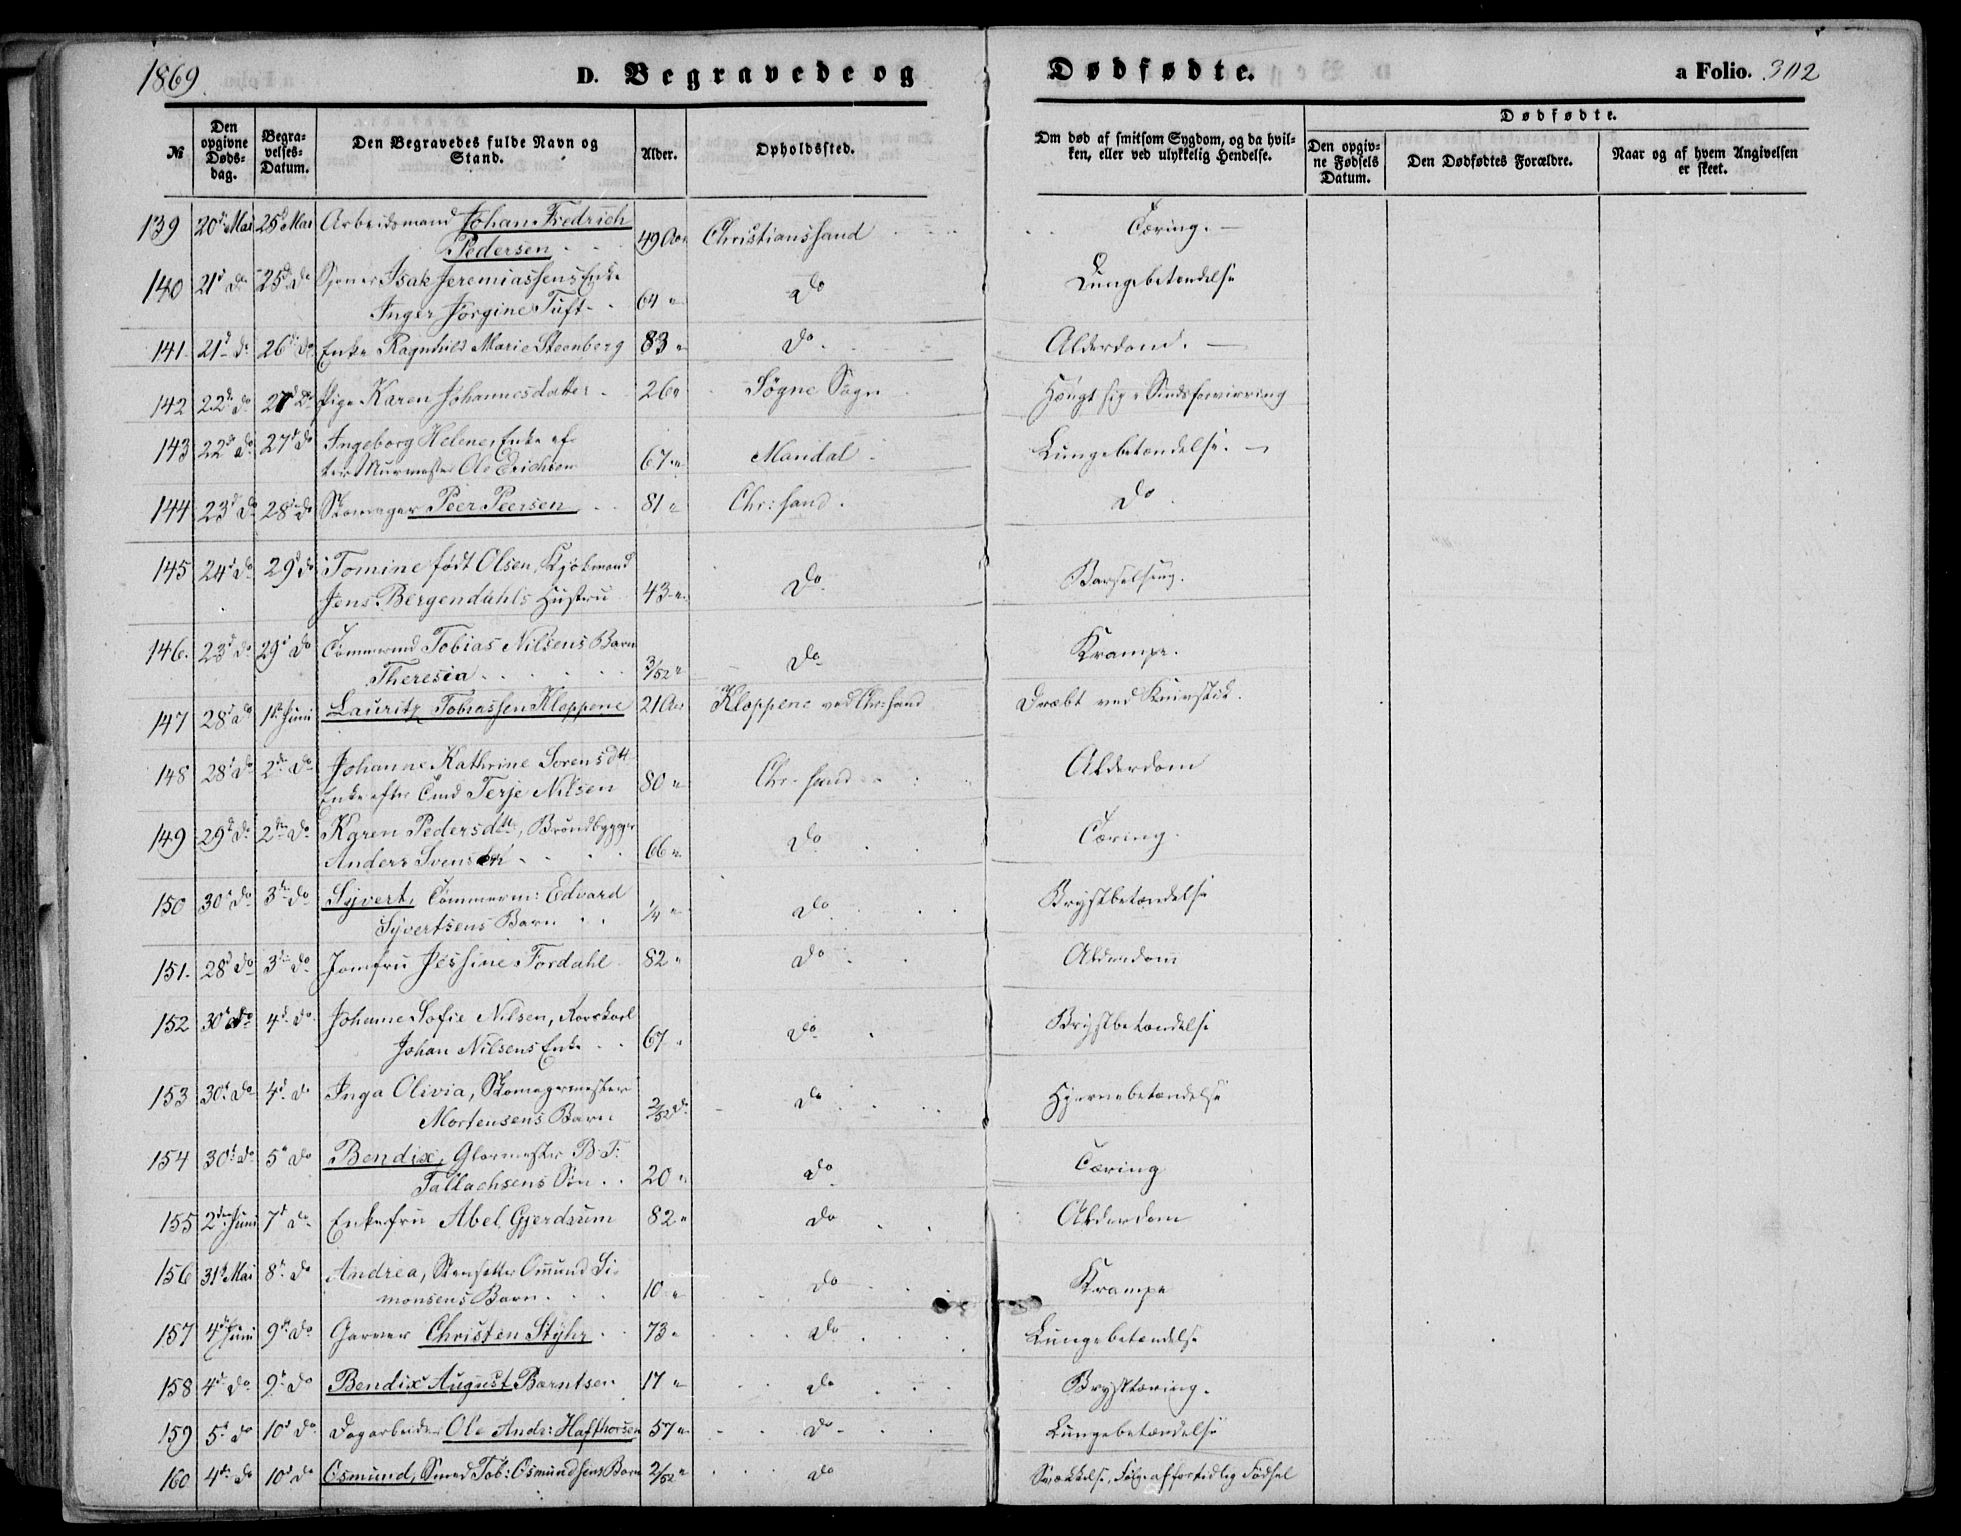 1869.
D. Begravede og Dødfødte.
a Folio. 302
№
Den opgivne Døds-dag.
Begra-velses-Datum.
Den Begravedes fulde Navn og Stand.
Alder.
Opholdssted.
Om død af smitsom Sygdom, og da hvil-ken, eller ved ulykkelig Hendelse.
Dødfødte.
Den opgiv-ne Fødsels Datum.
Den Dødfødtes Forældre.
Naar og af hvem Angivelsen er skeet.
139 20de Mai 25de Mai Arbeidsmand Johan Fredrich 49 Aar Christianssand Tæring.
Pedersen
140 21de do 25de do Isak Jeremiassens Enke Lungebetændelse
Inger Jørgine Tuft 64 " do
141. 21de do 26de do Enke Ragnhild Marie Steenberg 83 " do Alderdom.
142 22de do 27de do Pige Karen Johannesdatter 26 " Søgne Sogn Hængt sig i Sindsforvirring
143 22de do 27de do Ingeborg Helene, Enke ef-
ter Murmester Ole Erichsen 67 " Mandal Lungebetændelse.
144 23de do 28de do Skomager Peer Peersen 81 " Chr:sand. do
145 24de do 29de do Tomine født Olsen, Kjøbmand
Jens Bergendahls Hustru 43 " do Barselseng.
146. 23de do 29de do Tømmermd Tobias Nilsens Barn
Theresia 3/52 " do Krampe.
147 28de do 1ste Juni Lauritz Tobiassen Kloppene 21 Aar Kloppene ved Chr:sand Dræbt ved Knivstik.
148 28de do 2den do Johanne Kathrine Sørensdtt
Enke efter Terje Nilsen 80 " Chr:sand Alderdom
149 29de do 2den do Karen Pedersdtt, Brøndbygger
Anders Svensens 66 " do Tæring.
150 30de do 3die do Syvert, Tømmerm: Edvard
Syvertsens Barn 1/4 " do Brystbetændelse
151. 28de do 3die do Jomfru Jessine Fordahl 82 " do Alderdom
152 30te do 4de do Johanne Sofie Nilsen,
Johan Nilsens Enke 67 " do Brystbetændelse
153 30te do 4de do Inga Olivia, Skomagermester
Mortensens Barn 2/52 do do Hjernebetændelse
154 30te do 5te do Bendix, Glarmester B. T.
Tallachsens Søn 20 " do Tæring
155 2den Juni 7de do Enkefru Abel Gjerdrum 82 " do Alderdom
156 31te Mai 8de do Andrea, Stensætter Omund Si-
monsens Barn 10 " do Krampe
157 4de Juni 9de do Garver Christen Styhr 73 " do Lungebetændelse
158 4de do 9de do Bendix August Barntsen 17 " do Brysttæring.
159 5te do 10de do Dagarbeider Ole Andr: Haffthorsen 57 " do Lungebetændelse
160 4de do 10de do Osmund, Smed Tob: Osmundsens Barn 2/52 " do Svækkelse, Følge af fortidlig Fødsel